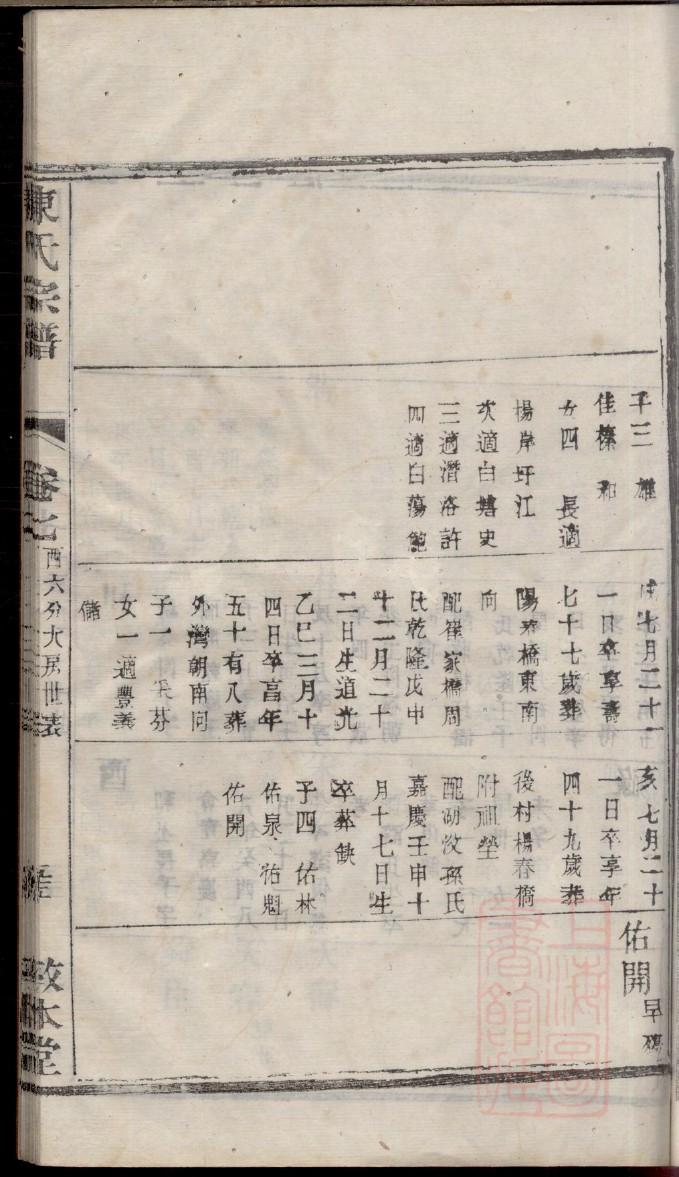 子三 雄
佳 榛 和
女四 長適
楊岸圩江
次適白塘史
三適潛洛許
四適白蕩鮑
戌七月二十一
一日卒享壽
七十七歲葬
陽橋東南
向
配崔家橋周
氏乾隆戊申
十二月二十
二日生道光
乙巳三月十
四日卒享年
五十有八葬
外灣朝南向
子一 芬
女一適豐義
儲
亥七月二十
一日卒享年
四十九歲葬
後村楊春橋
附祖塋
配湖汶孫氏
嘉慶壬申十
月十七日生
卒葬缺
子四 佑林
佑泉 佑魁
佑開
佑開 早殤
陳氏宗譜
卷七
西六分大房世表
敦本堂